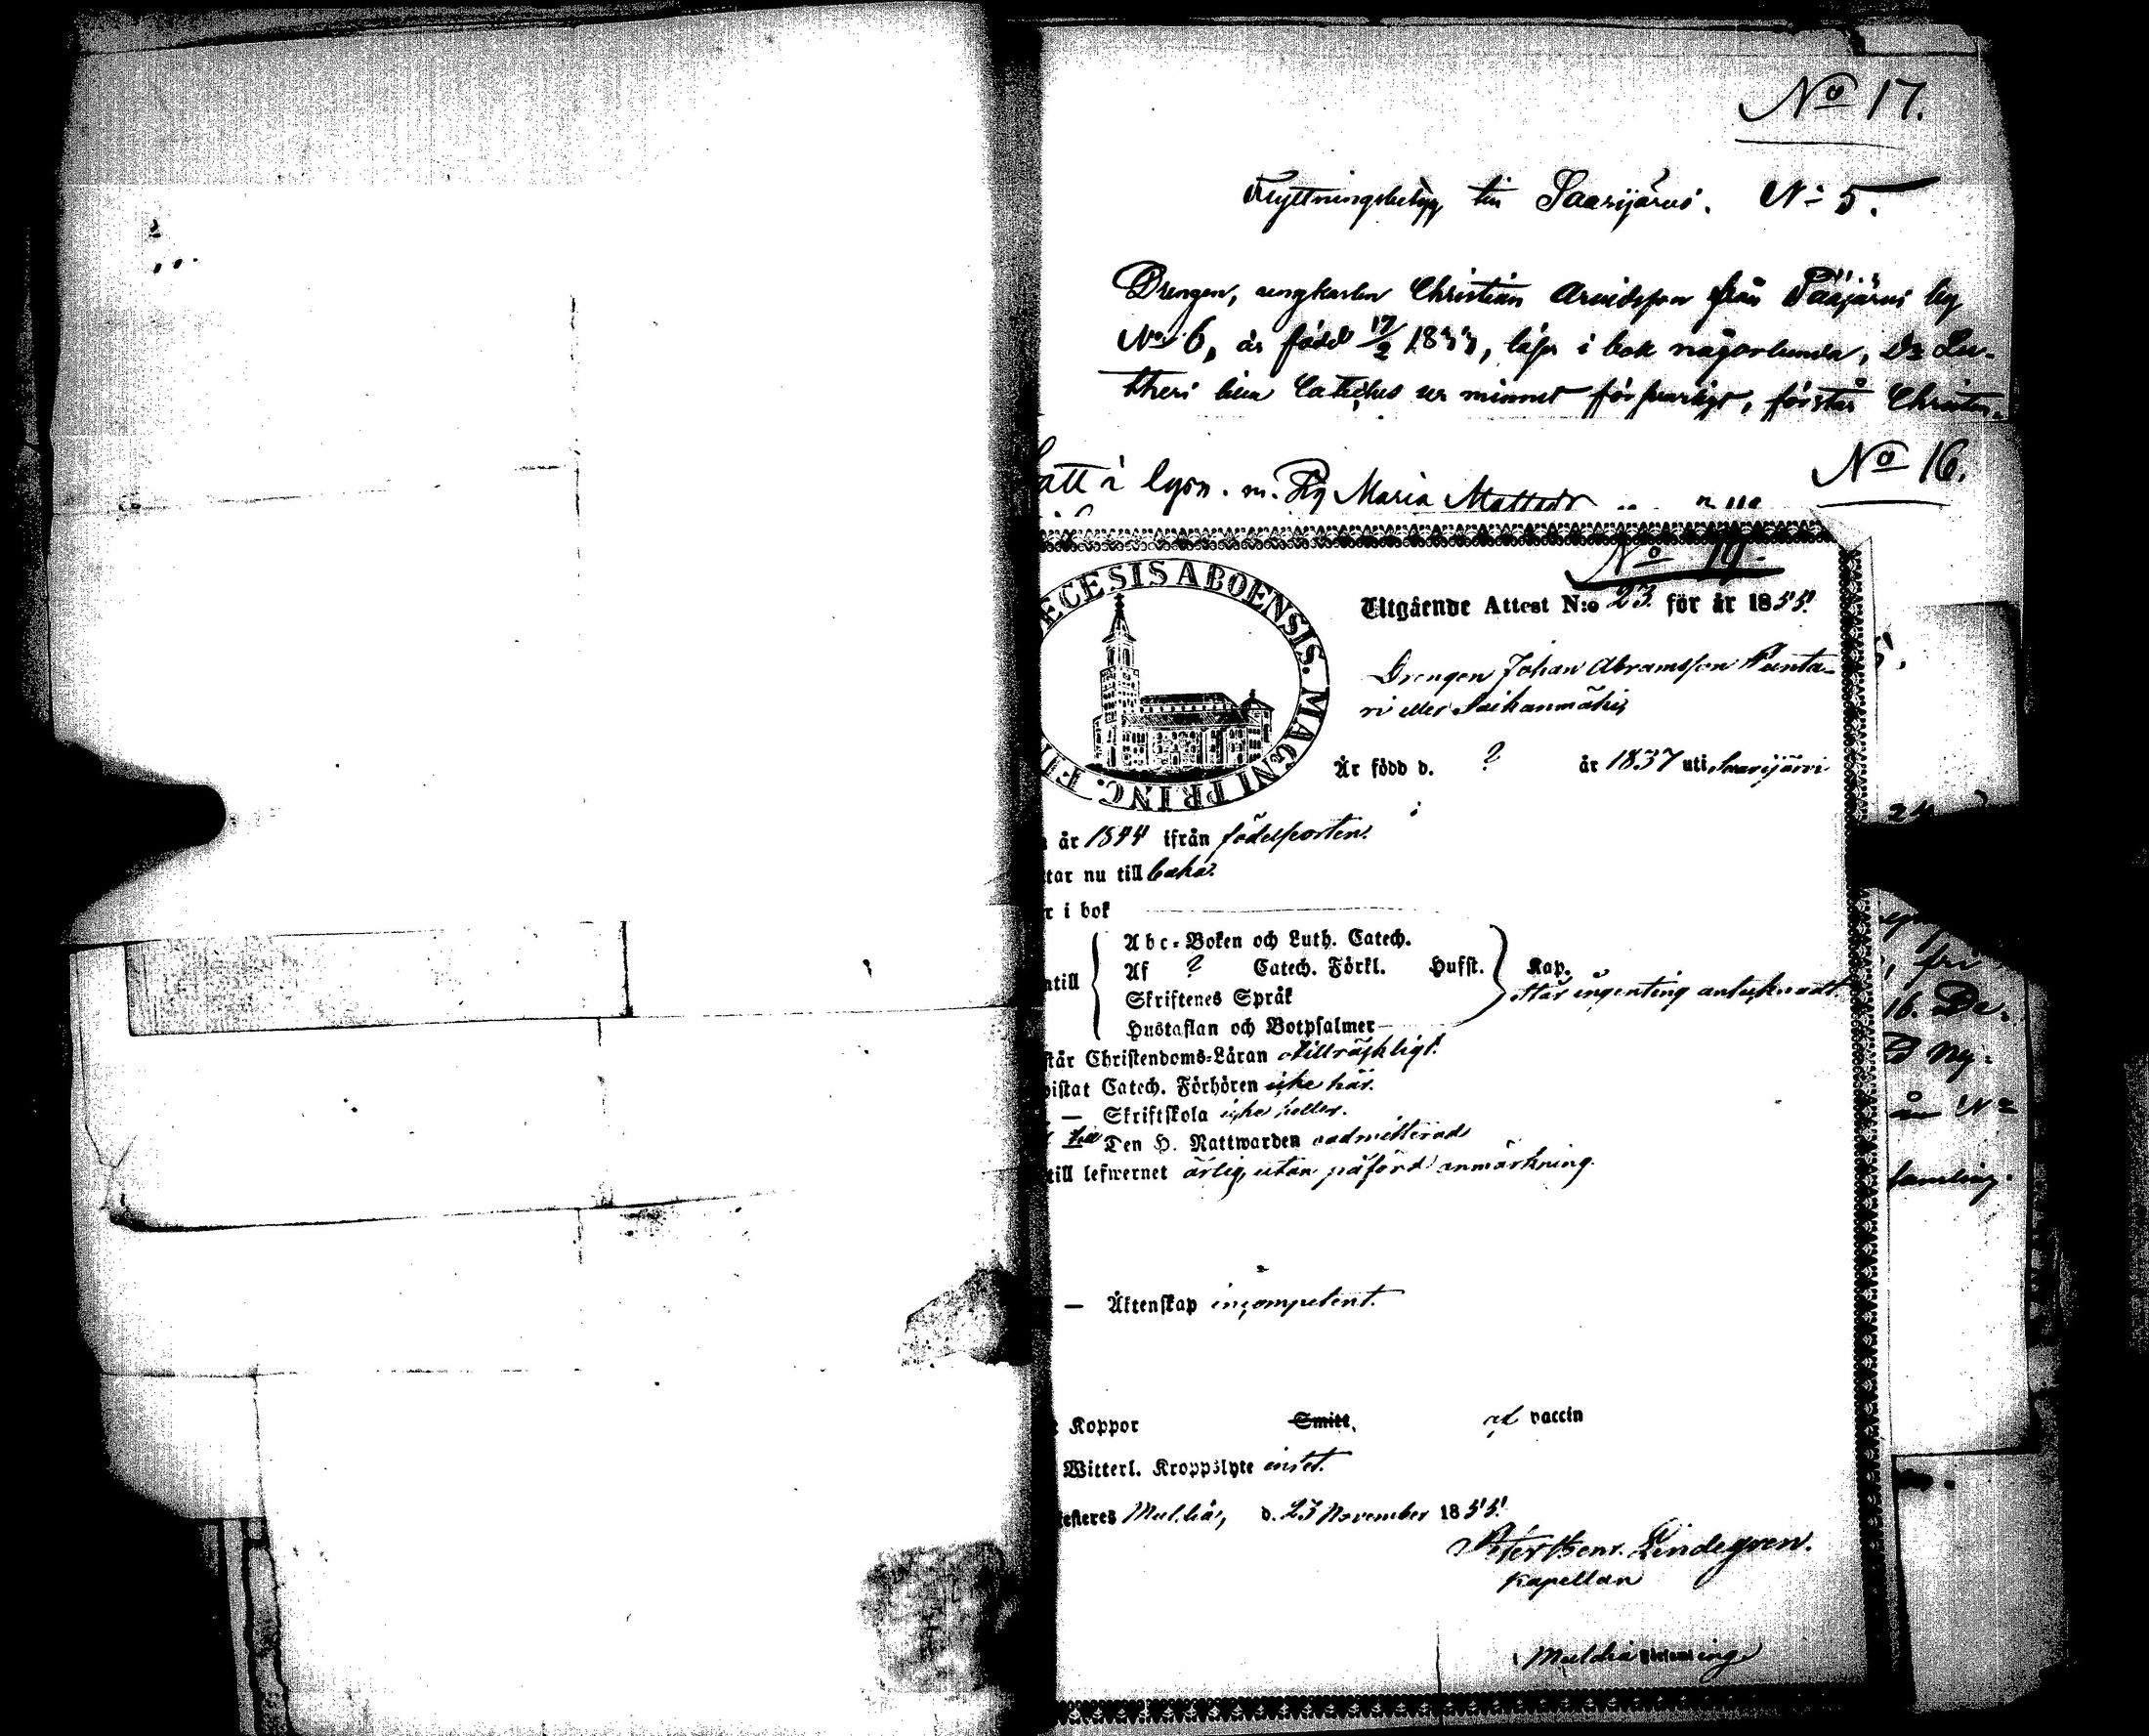 No 17.
Flyttningsbetyg till Saarijärvi. No 5.
Drengen, ungkarlen Christian Arvidsson från Pääjärvi by
No 6, är född 17/2 1833, läser i bok någorlunda, Dr Lu-
theri lilla Cateches ur minnet försvarligt, förstår Christen-
No 16.
att i Lysn. m. Pig. Maria Mattsdr
No 19.
Utgående Attest N:o 23 för år 1855.
Drengen Johan Abramsson Punta-
ri eller Saikanmäki
DIŒCESIS ABOENSIS. MAGNI PRINC. F
Är född d. ? år 1837 uti Saarijärvi
år 1844 ifrån födelseorten.
tar nu till baka.
r i bok
ntill
Abc-Boken och Luth. Catech.
Af ? Catech. Förkl. Hufst. Kap.
Skriftenes Språk
står ingenting anteknadt.
Hustaflan och Botpsalmer
står Christendoms-Läran otillräckligt.
vistat Catech. Förhören icke här.
— Skriftskola icke heller.
till Den H. Nattwarden oadmitterad
till lefwernet ärlig, utan påförd anmärkning.
— Äktenskap incompetent.
Koppor Smitt. vaccin
Witterl. Kroppslyte intet.
esteres Multia, d. 23 November 1855.
Peter Henr. Lindegren.
Kapellan
Multia församling
24
16. De-
ny-
No
samling.